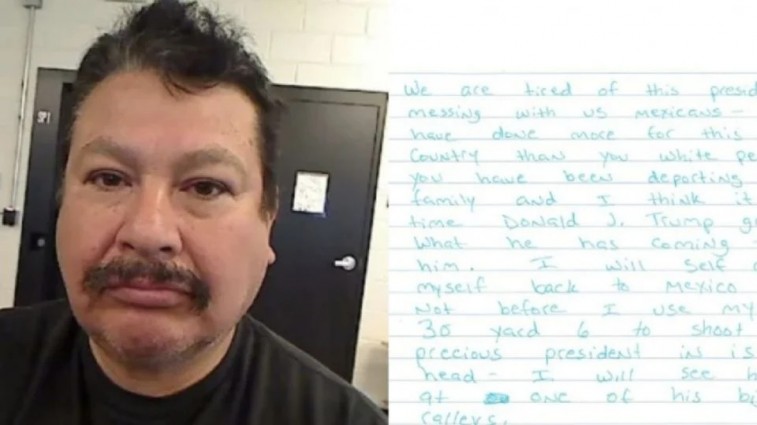 We are tired of this presid
messing with us mexicans -
have done more for this
Country than you white pe
you have been deporting
family and I think it
time Donald J. Trump g
What he has coming
him. I will self
myself back to mexico
Not before I use my
30 yard 6 to shoot
precious president in is
head - I will see h
at one of his bi
rallers.